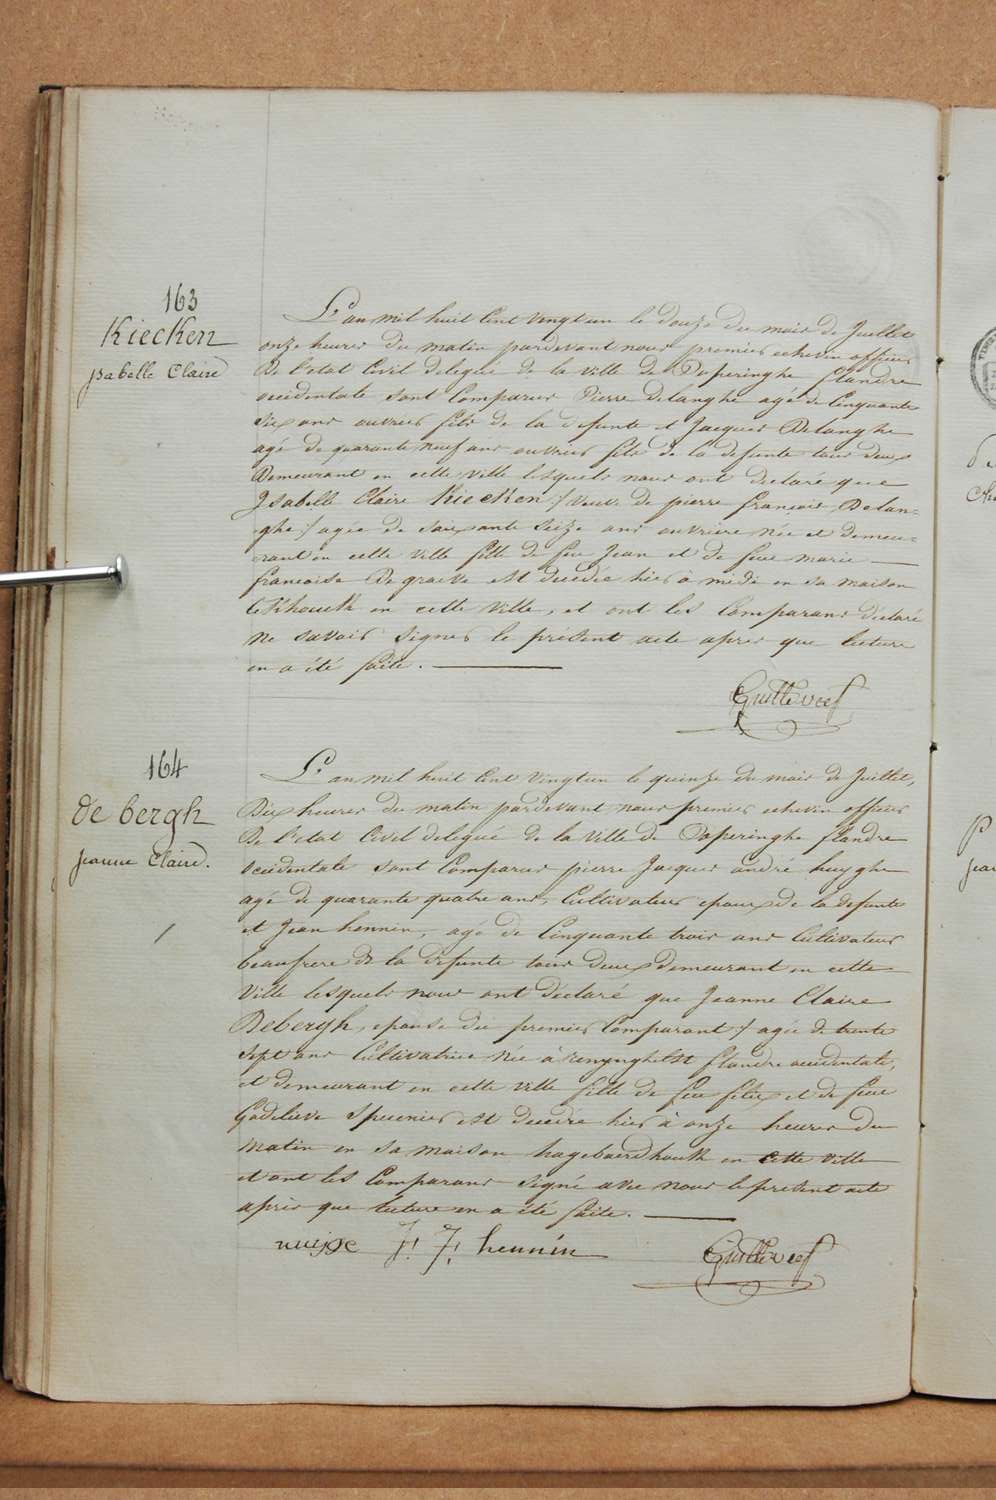 163
Kiecken
Isabelle Claire
L'an mil huit Cent vingt un le douze du mois de Juillet
onze heures du matin pardevant nous premier echevin officier
De l'etat Civil delegué de la ville de Poperinghe flandre
occidentale sont Comparus Pierre Delanghe agé de Cinquante
Six ans ouvrier fils de la defunte et Jacques Delanghe
agé de quarante neuf ans ouvrier fils de la defunte tous deux
Demeurant en cette ville lesquels nous ont déclaré que
Isabelle Claire Kiecken :/ veuve de pierre françois Delan-
ghe :/ agée de soixante Seize ans ouvrière née et demeu-
rant en cette ville fille de feu Jean et de feue marie
francoise De graeve est decedée hier à midi en sa maison
en cette ville, et ont les Comparans déclaré
ne savoir signer le présent acte apres que lecture
en a été faite.
164
de bergh
Jeanne Claire.
L'an mil huit Cent vingt un le quinze du mois de Juillet,
Dix heures du matin pardevant nous premier echevin officier
De l'etat Civil delegué de la ville de Poperinghe flandre
occidentale sont Comparus pierre Jacques andré huyghe
agé de quarante quatre ans, Cultivateur epoux de la defunte
et Jean hennin, agé de Cinquante trois ans Cultivateur
beaufrere de la defunte tous deux demeurant en cette
Ville lesquels nous ont déclaré que Jeanne Claire
Debergh, epouse du premier Comparant :/ agée de trente
Sept ans Cultivatrice née à renynghelst flandre occidentale,
et demeurant en cette ville fille de feu felix et de feue
Godelieve Spuenier est decedée hier à onze heures du
matin en sa maison en cette ville
et ont les Comparans signé avec nous le présent acte
après que lecture en a été faite.
J: F: hennin